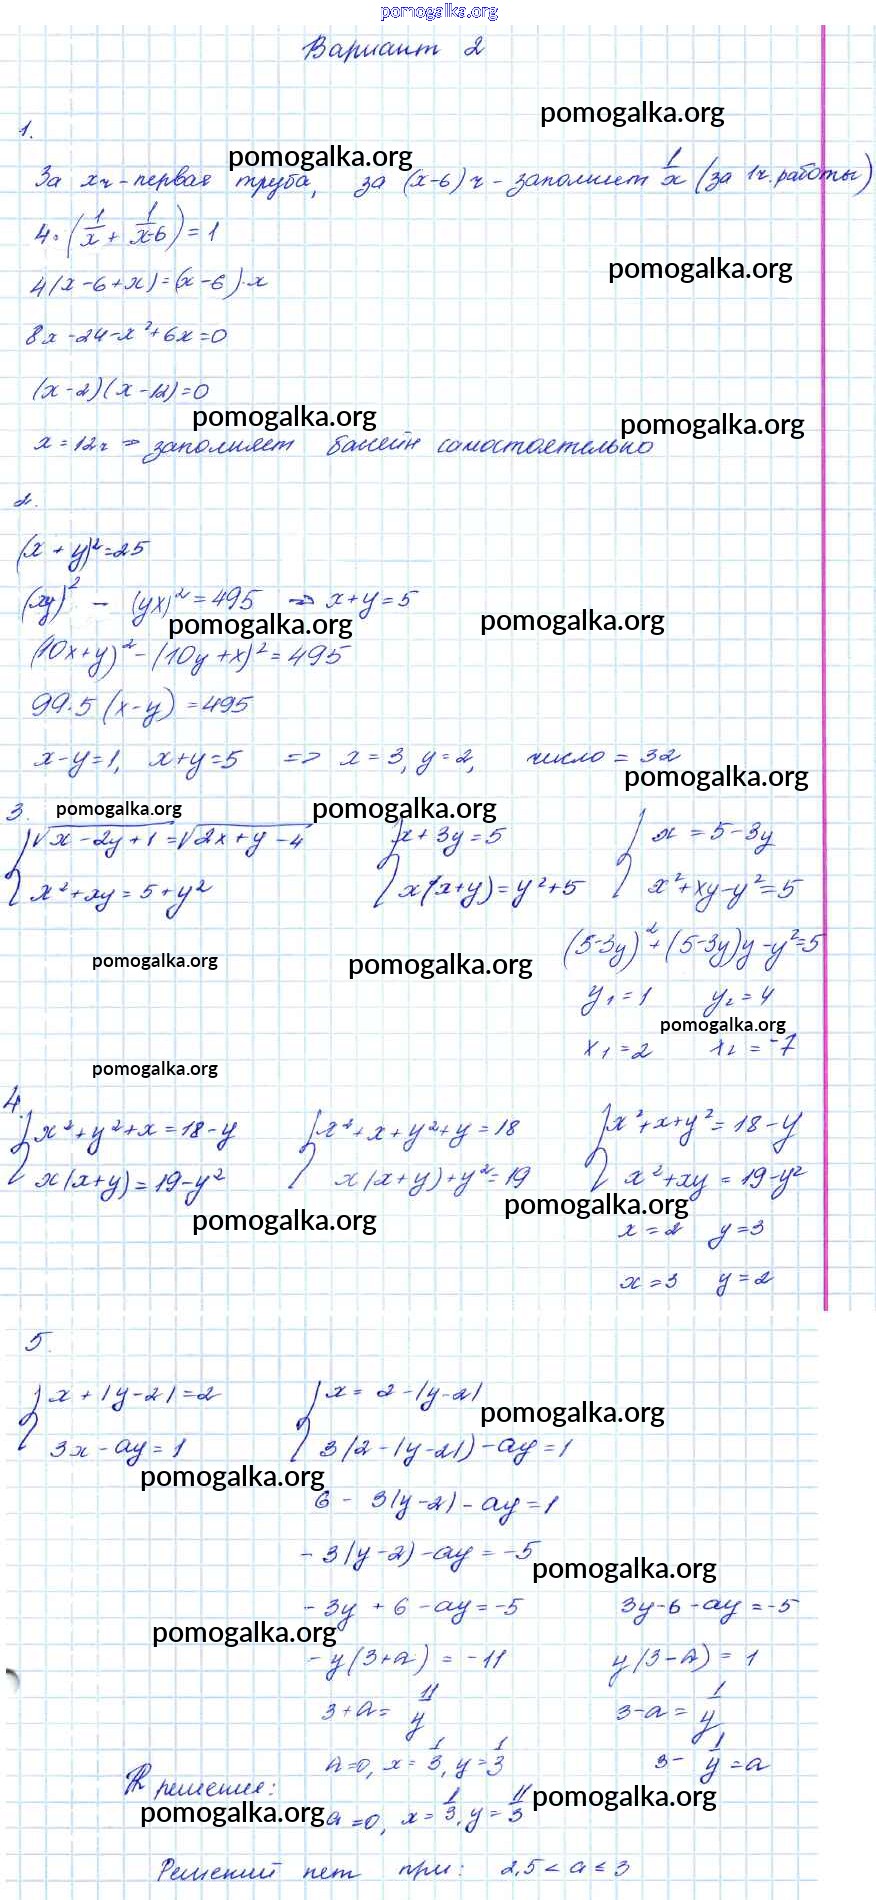 pomogalka.org
Вариант 2
pomogalka.org
1.
pomogalka.org
За x ч - первая труба, за (x-6) ч - заполняет 1/x (за 1ч. работы)
4·(1/x + 1/x-6) = 1
pomogalka.org
4(x-6+x) = (x-6)·x
8x-24-x²+6x=0
(x-2)(x-12)=0
pomogalka.org
pomogalka.org
x = 12ч ⇒ заполняет бассейн самостоятельно
2.
(x+y)²=25
(xy)² - (yx)² = 495 ⇒ x+y=5
pomogalka.org
pomogalka.org
(10x+y)² - (10y+x)² = 495
99·5(x-y) = 495
x-y=1, x+y=5 => x=3, y=2, число = 32
pomogalka.org
3.
pomogalka.org
pomogalka.org
{√x-2y+1 = √2x+y-4 {x+3y=5 {x = 5-3y
x²+xy = 5+y² x(x+y) = y²+5 x²+xy-y²=5
(5-3y)²+(5-3y)y-y²=5
pomogalka.org
pomogalka.org
y₁=1 y₂=4
pomogalka.org
x₁=2 x₂=-7
pomogalka.org
4.
{x²+y²+x=18-y {x²+x+y²+y=18 {x²+x+y²=18-y
x(x+y)=19-y² x(x+y)+y²=19 x²+xy=19-y²
pomogalka.org
pomogalka.org
x=2 y=3
x=3 y=2
5.
{x+|y-2|=2 {x=2-|y-2|
pomogalka.org
3x-ay=1 3(2-|y-2|)-ay=1
pomogalka.org
6-3(y-2)-ay=1
-3(y-2)-ay=-5
pomogalka.org
-3y+6-ay=-5 3y-6-ay=-5
pomogalka.org
-y(3+a)=-11 y(3-a)=1
3+a=11/y 3-a=1/y
a=0, x=1/3, y=1/3 3-1/y=a
решение:
pomogalka.org
pomogalka.org
a=0, x=1/3, y=11/3
Решений нет при: 2,5<a≤3